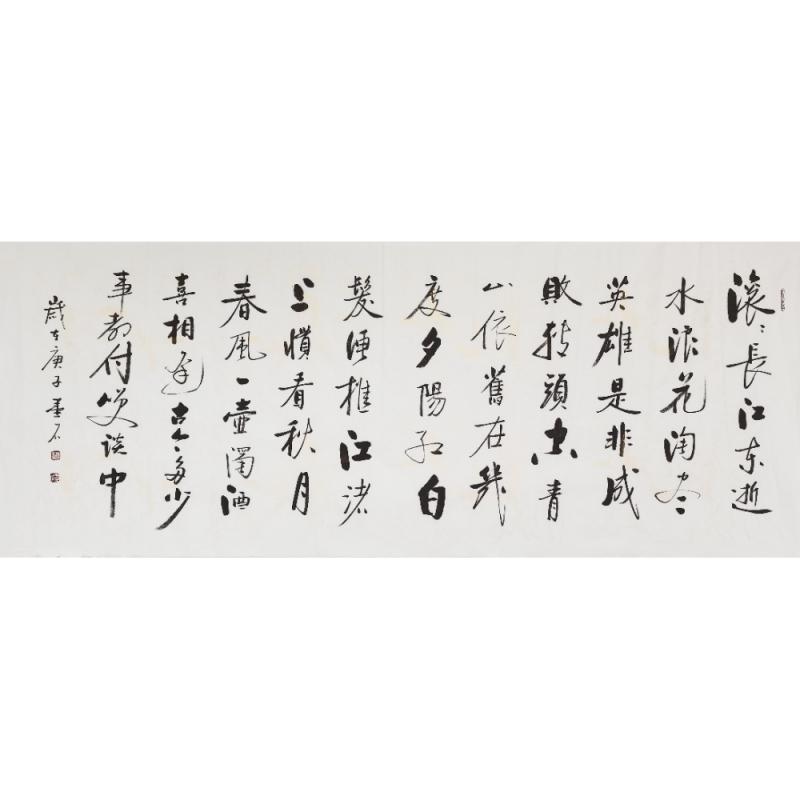 滚〻長江东逝
水浪花淘尽
英雄是非成
敗转頭空青
山依舊在幾
度夕陽红白
髮渔樵江渚
上慣看秋月
春風一壶濁酒
喜相逢古今多少
事都付笑谈中
歲在庚子墨石